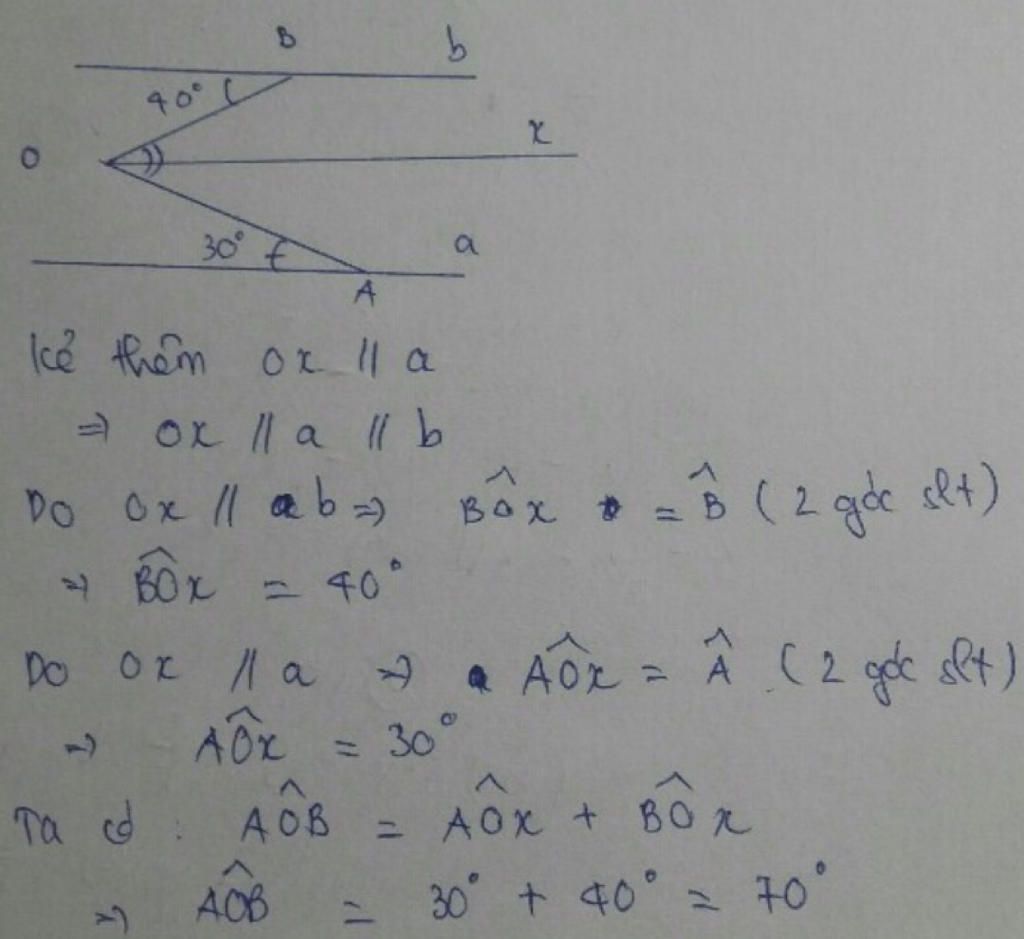 B b
40°
x
O
30° a
A
Kẻ thêm Ox // a
⇒ Ox // a // b
Do Ox // b ⇒ BÔx = B̂ (2 góc slt)
⇒ BÔx = 40°
Do Ox // a ⇒ AÔx = Â (2 góc slt)
⇒ AÔx = 30°
Ta có : AÔB = AÔx + BÔx
⇒ AÔB = 30° + 40° = 70°